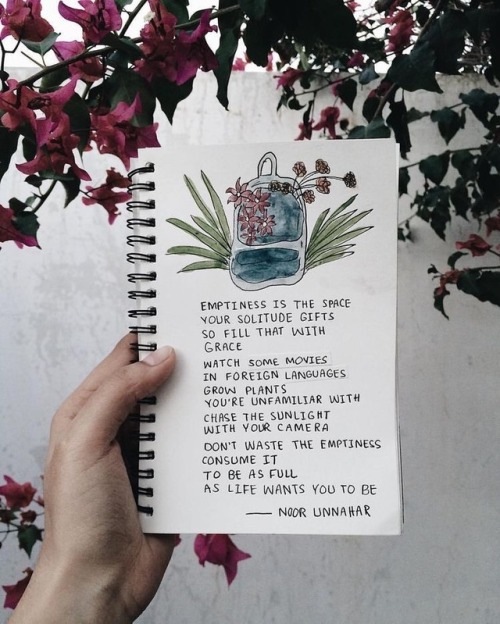 EMPTINESS IS THE SPACE
YOUR SOLITUDE GIFTS
SO FILL THAT WITH
GRACE
WATCH SOME MOVIES
IN FOREIGN LANGUAGES
GROW PLANTS
YOU'RE UNFAMILIAR WITH
CHASE THE SUNLIGHT
WITH YOUR CAMERA
DON'T WASTE THE EMPTINESS
CONSUME IT
TO BE AS FULL
AS LIFE WANTS YOU TO BE
— NOOR UNNAHAR